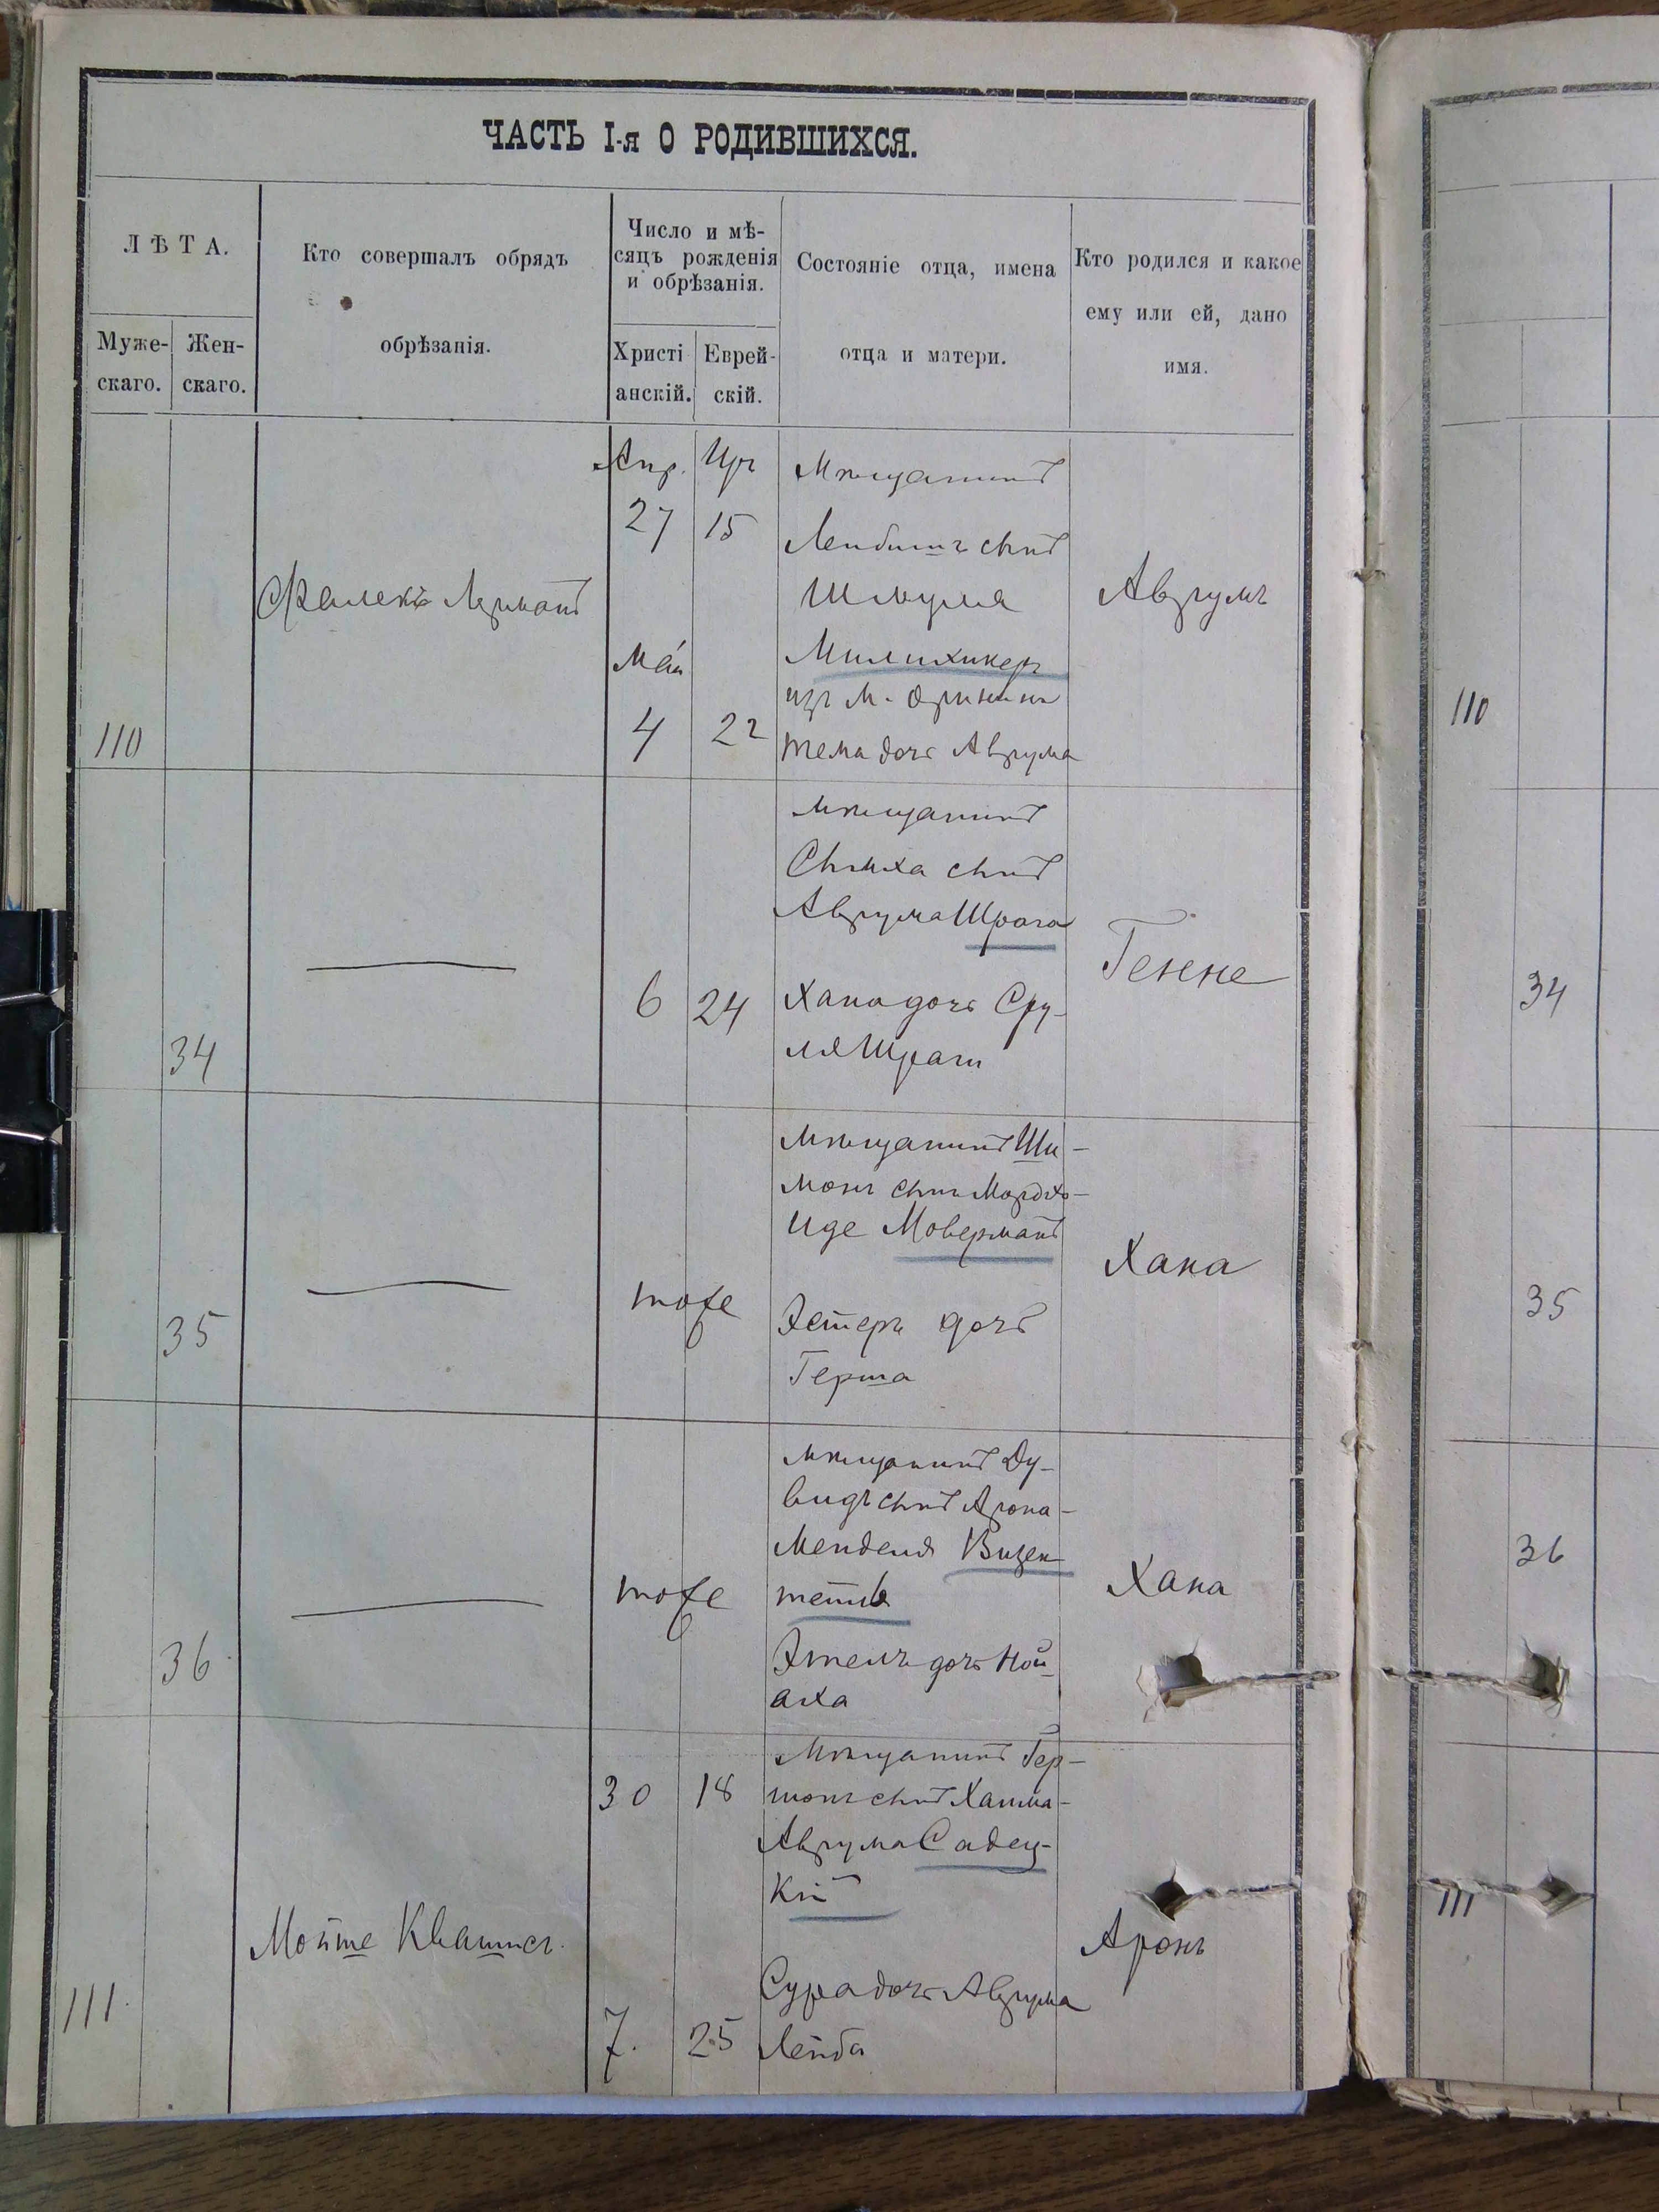 ЧАСТЬ I-я О РОДИВШИХСЯ.
ЛѢТА.
Муже-
скаго.
Жен-
скаго.
Кто совершалъ обрядъ
обрѣзанія.
Число и мѣ-
сяцъ рожденія
и обрѣзанія.
Христі
анскій.
Еврей-
скій.
Состояніе отца, имена
отца и матери.
Кто родился и какое
ему или ей, дано
имя.
110
Фалекъ Лерманъ
Апр.
27
Маія
4
Ир
15
22
Мѣщанинъ
Лейбишъ сынъ
Шмуля
Милихикеръ
изъ м.
дочь Аврума
Аврумъ
34
6
24
мѣщанинъ
Сымха сынъ
Аврума Шрага
Хана дочь Сру-
ля Шрага
Генне
35
тоже
мѣщанинъ Ши-
монъ сынъ Мордхо-
Иде Моверманъ
Эстеръ дочь
Герша
Хана
36
тоже
мѣщанинъ Ду-
видъ сынъ Арона-
Менделя Визен-
Этель дочь Ной-
аха
Хана
111
Мойше Квашисъ.
30
7.
18
25
Мѣщанинъ Гер-
шонъ сынъ Хаима-
Аврума Садец-
кій
Сура дочь Аврума
Лейба
Аронъ
110
34
35
36
111